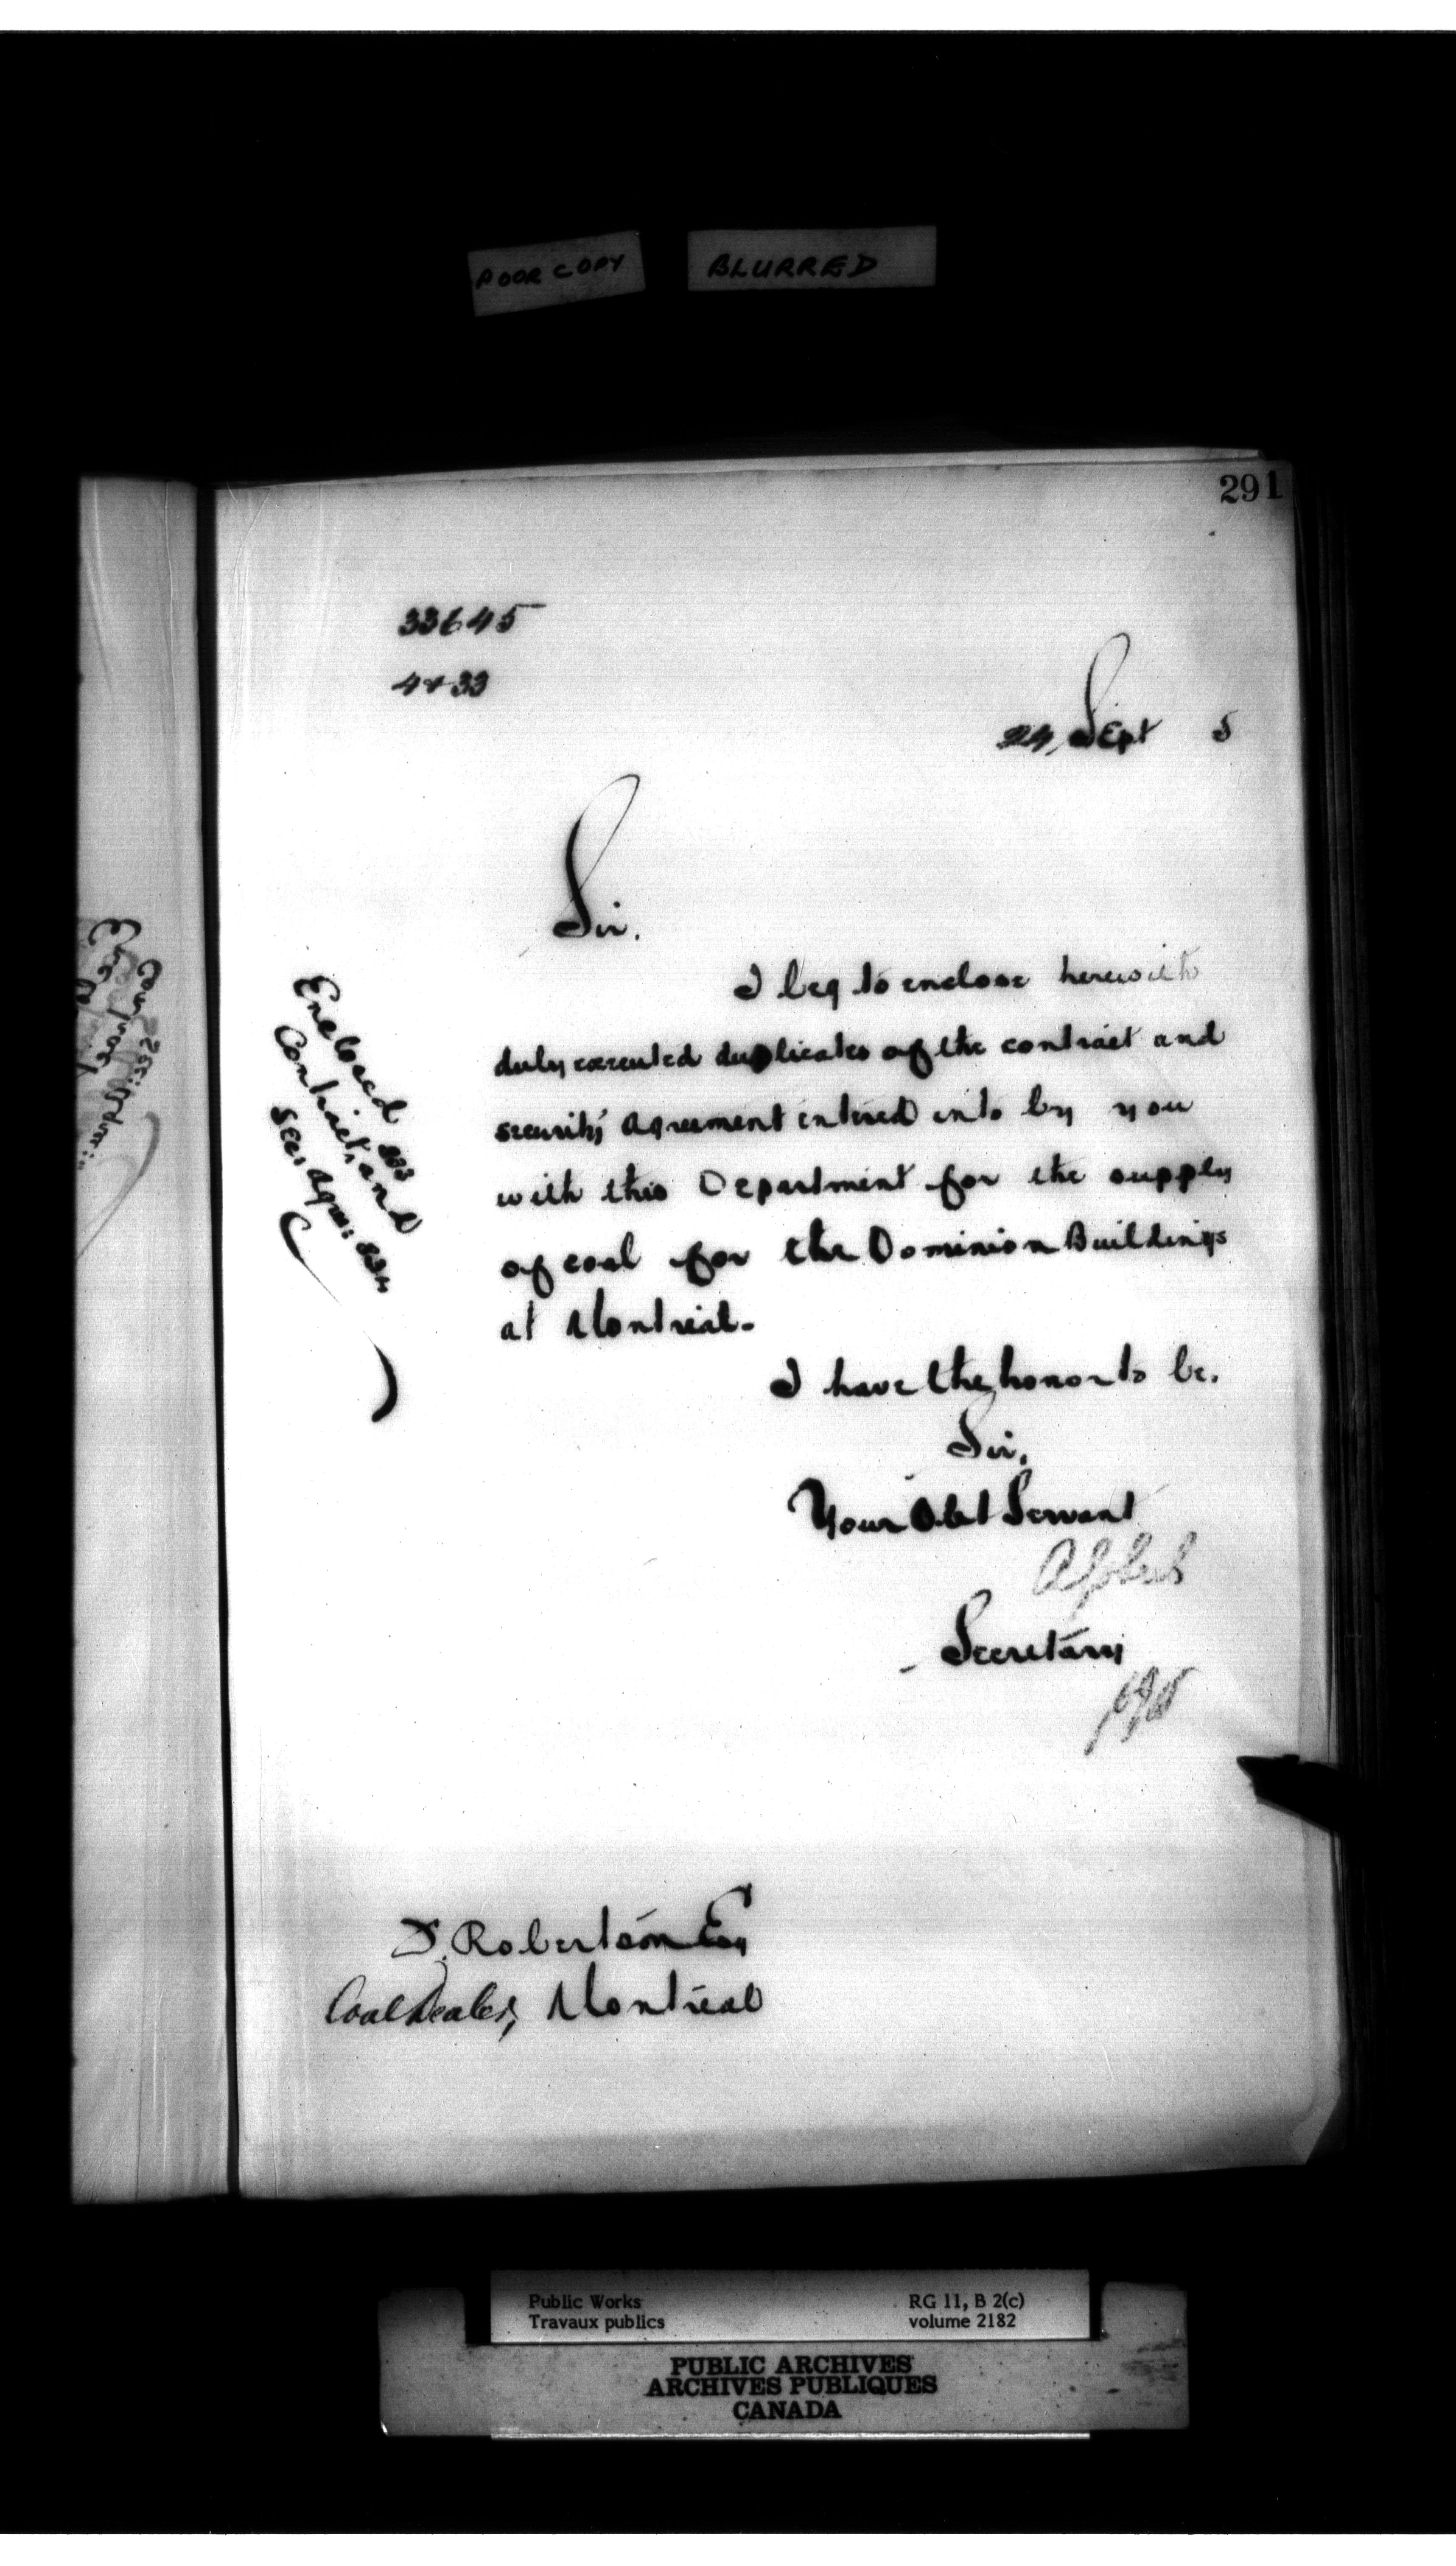 POOR COPY
BLURRED
291
33645
24, Sept 5
Sir.
I beg to enclose herewith
duly executed duplicates of the contract and
security agreement entered into by you
with this Department for the supply
of coal for the Dominion Buildings
at Montreal.
I have the honor to be.
Sir,
Your Obt Servant
Secretary
Enclosed
Contract and
Sec: Agree:
D. Robertson Esq
Coal Dealer, Montreal
Public Works
Travaux publics
RG 11, B 2(c)
volume 2182
PUBLIC ARCHIVES
ARCHIVES PUBLIQUES
CANADA